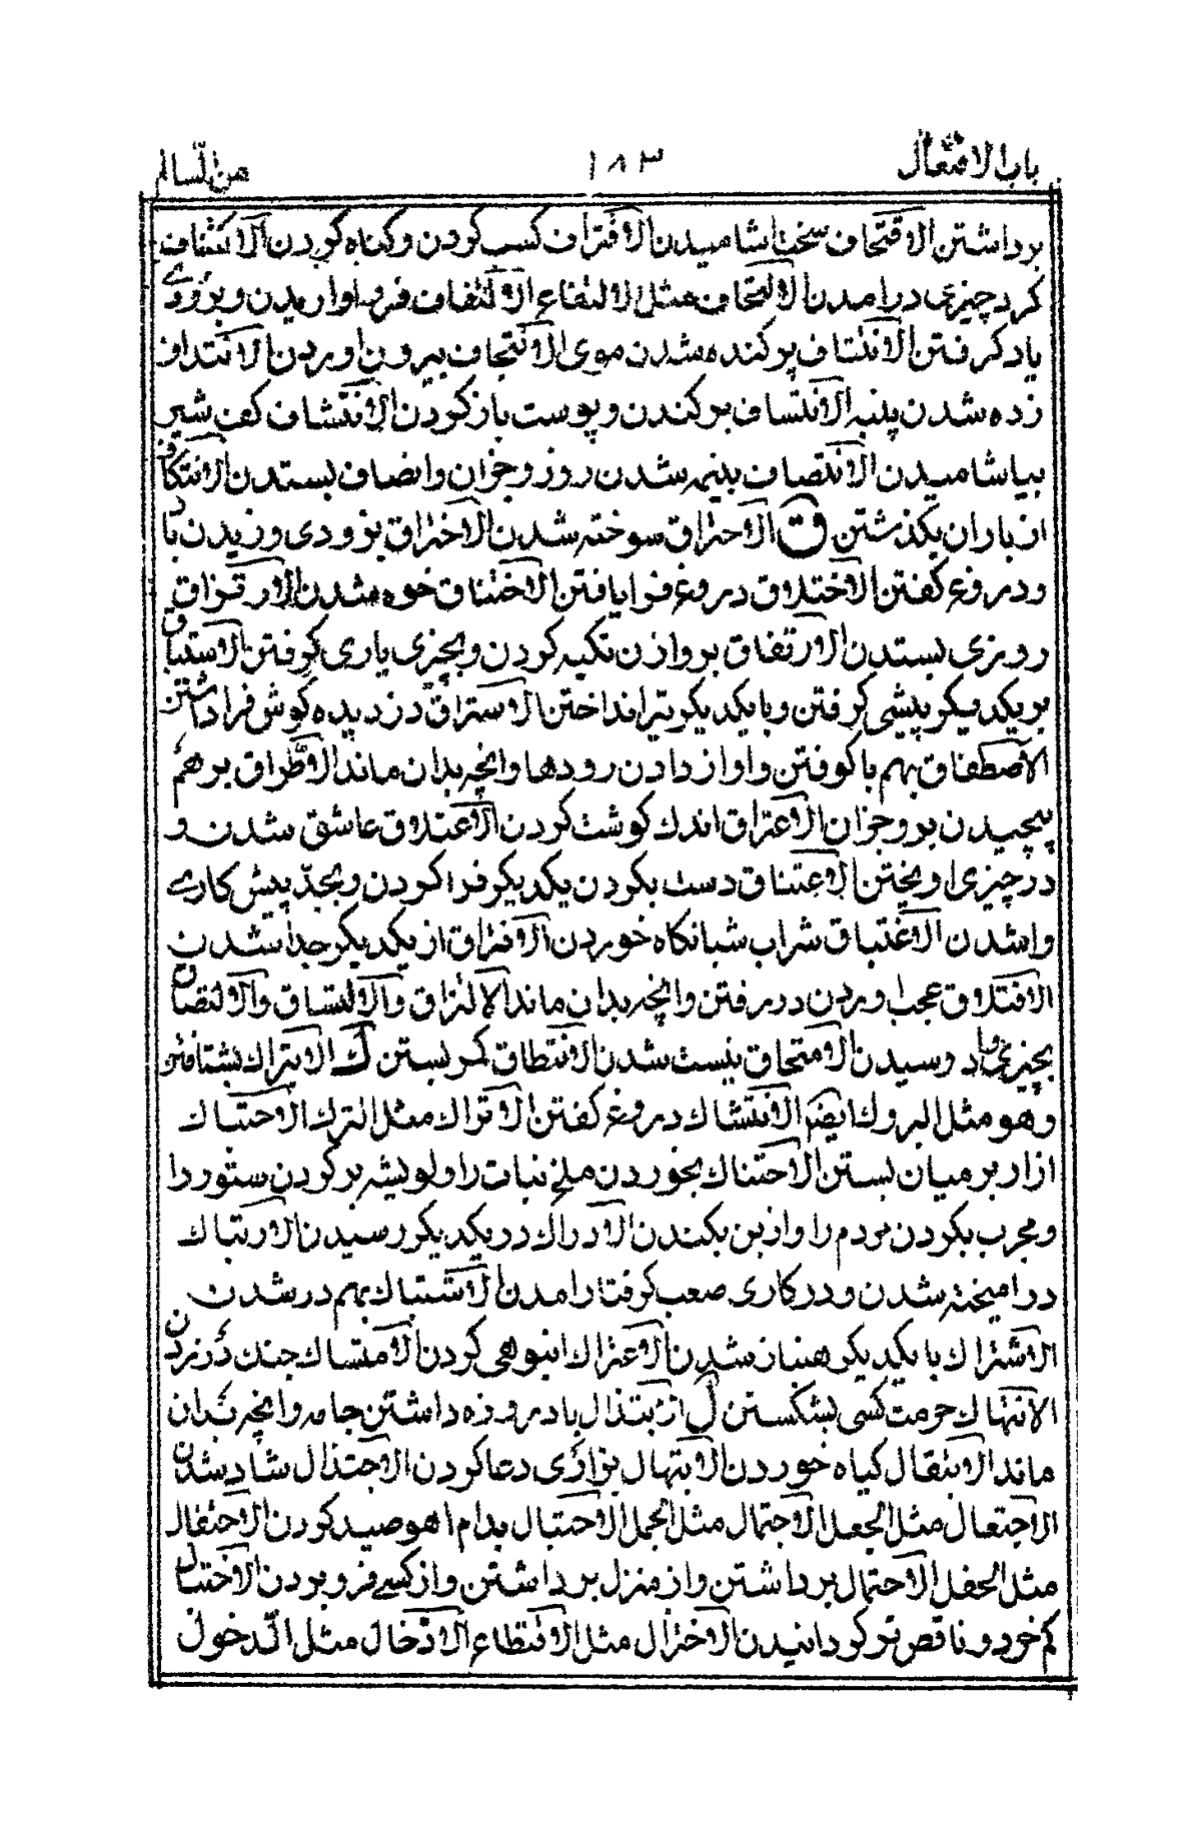 باب الافتعال ١٨٣ من السالم
برداشتن الاقتحاف سخت اشاميدن الاقتراف كسب كردن وكناه كردن الاكتناف
كرد چيزى درامدن الالتحاف مثل الالتفاع الالتفاف فرو اواريدن وبزودى
ياد كرفتن الانتتاف بركنده شدن موى الانتجاف بيرون اوردن الانتداف
زده شدن پنبه الانتساف بركندن وپوست باز كردن الانتشاف كف شير
بياشاميدن الانتصاف بنيمه شدن روز وجزان وانصاف بستدن الانتكاف
از باران بكذشتن ق الاحتراق سوخته شدن الاختراق بزودى وزيدن باد
ودروغ كفتن الاختلاق دروغ فرا يافتن الاختناق خوه شدن الارتزاق
روزى بستدن الارتفاق بر وازن تكيه كردن وبچيزى يارى كرفتن الاستباق
بر يكديكر پيشى كرفتن وبا يكديكر تير انداختن الاستراق دزديده كوش فرا داشتن
الاصطفاق بهم با كوفتن واواز دادن رودها وانچه بدان ماند الاطراق بر هم
پيچيدن پر وجزان الاعتراق اندك كوشت كردن الاعتلاق عاشق شدن و
در چيزى اويختن الاعتناق دست بكردن يكديكر فرا كردن وبجد پيش كارى
واشدن الاغتباق شراب شبانكاه خوردن الافتراق از يكديكر جدا شدن
الافتلاق عجب اوردن در رفتن وانچه بدان ماند الالتزاق والالتساق والالتصاق
بچيزى وا دوسيدن الامتحاق نيست شدن الانتطاق كمر بستن ك الابتراك بشتافتن
وهو مثل البروك ايضا الابتشاك دروغ كفتن الاتراك مثل الترك الاحتباك
ازار بر ميان بستن الاحتناك بخوردن ملخ نبات را ولويشه بر كردن ستور را
ومجرب بكردن مردم را واز بن بكندن الادراك در يكديكر رسيدن الارتباك
در اميخته شدن ودر كارى صعب كرفتار امدن الاشتباك بهم در شدن
الاشتراك با يكديكر هنباز شدن الاعتراك انبوهى كردن الامتساك چنك در زدن
الانتهاك حرمت كسى بشكستن ل الابتذال باد روزه داشتن جامه وانچه بدان
ماند الابتقال كياه خوردن الابتهال بزارى دعا كردن الاجتذال شاد شدن
الاجتعال مثل الجعل الاجتمال مثل الجمل الاحتبال بدام اهو صيد كردن الاحتفال
مثل الحفل الاحتمال برداشتن واز منزل برداشتن واز كسى فرو بردن الاختبال
كم خرد وناقص تر كردانيدن الاختزال مثل الاقتطاع الادخال مثل الدخول